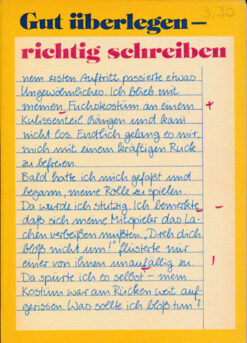 3,30
Gut überlegen –
richtig schreiben
nem ersten Auftritt passierte etwas
Ungewöhnliches. Ich blieb mit
meinem Fuchskostüm an einem
Kulissenteil hängen und kam
nicht los. Endlich gelang es mir,
mich mit einem kräftigen Ruck
zu befreien.
Bald hatte ich mich gefaßt und
begann, meine Rolle zu spielen.
Da wurde ich stutzig. Ich bemerkte,
daß sich meine Mitspieler das La-
chen verbeißen mußten. „Dreh dich
bloß nicht um!" flüsterte mir
einer von ihnen unauffällig zu.
Da spürte ich es selbst – mein
Kostüm war am Rücken weit auf-
gerissen. Was sollte ich bloß tun?